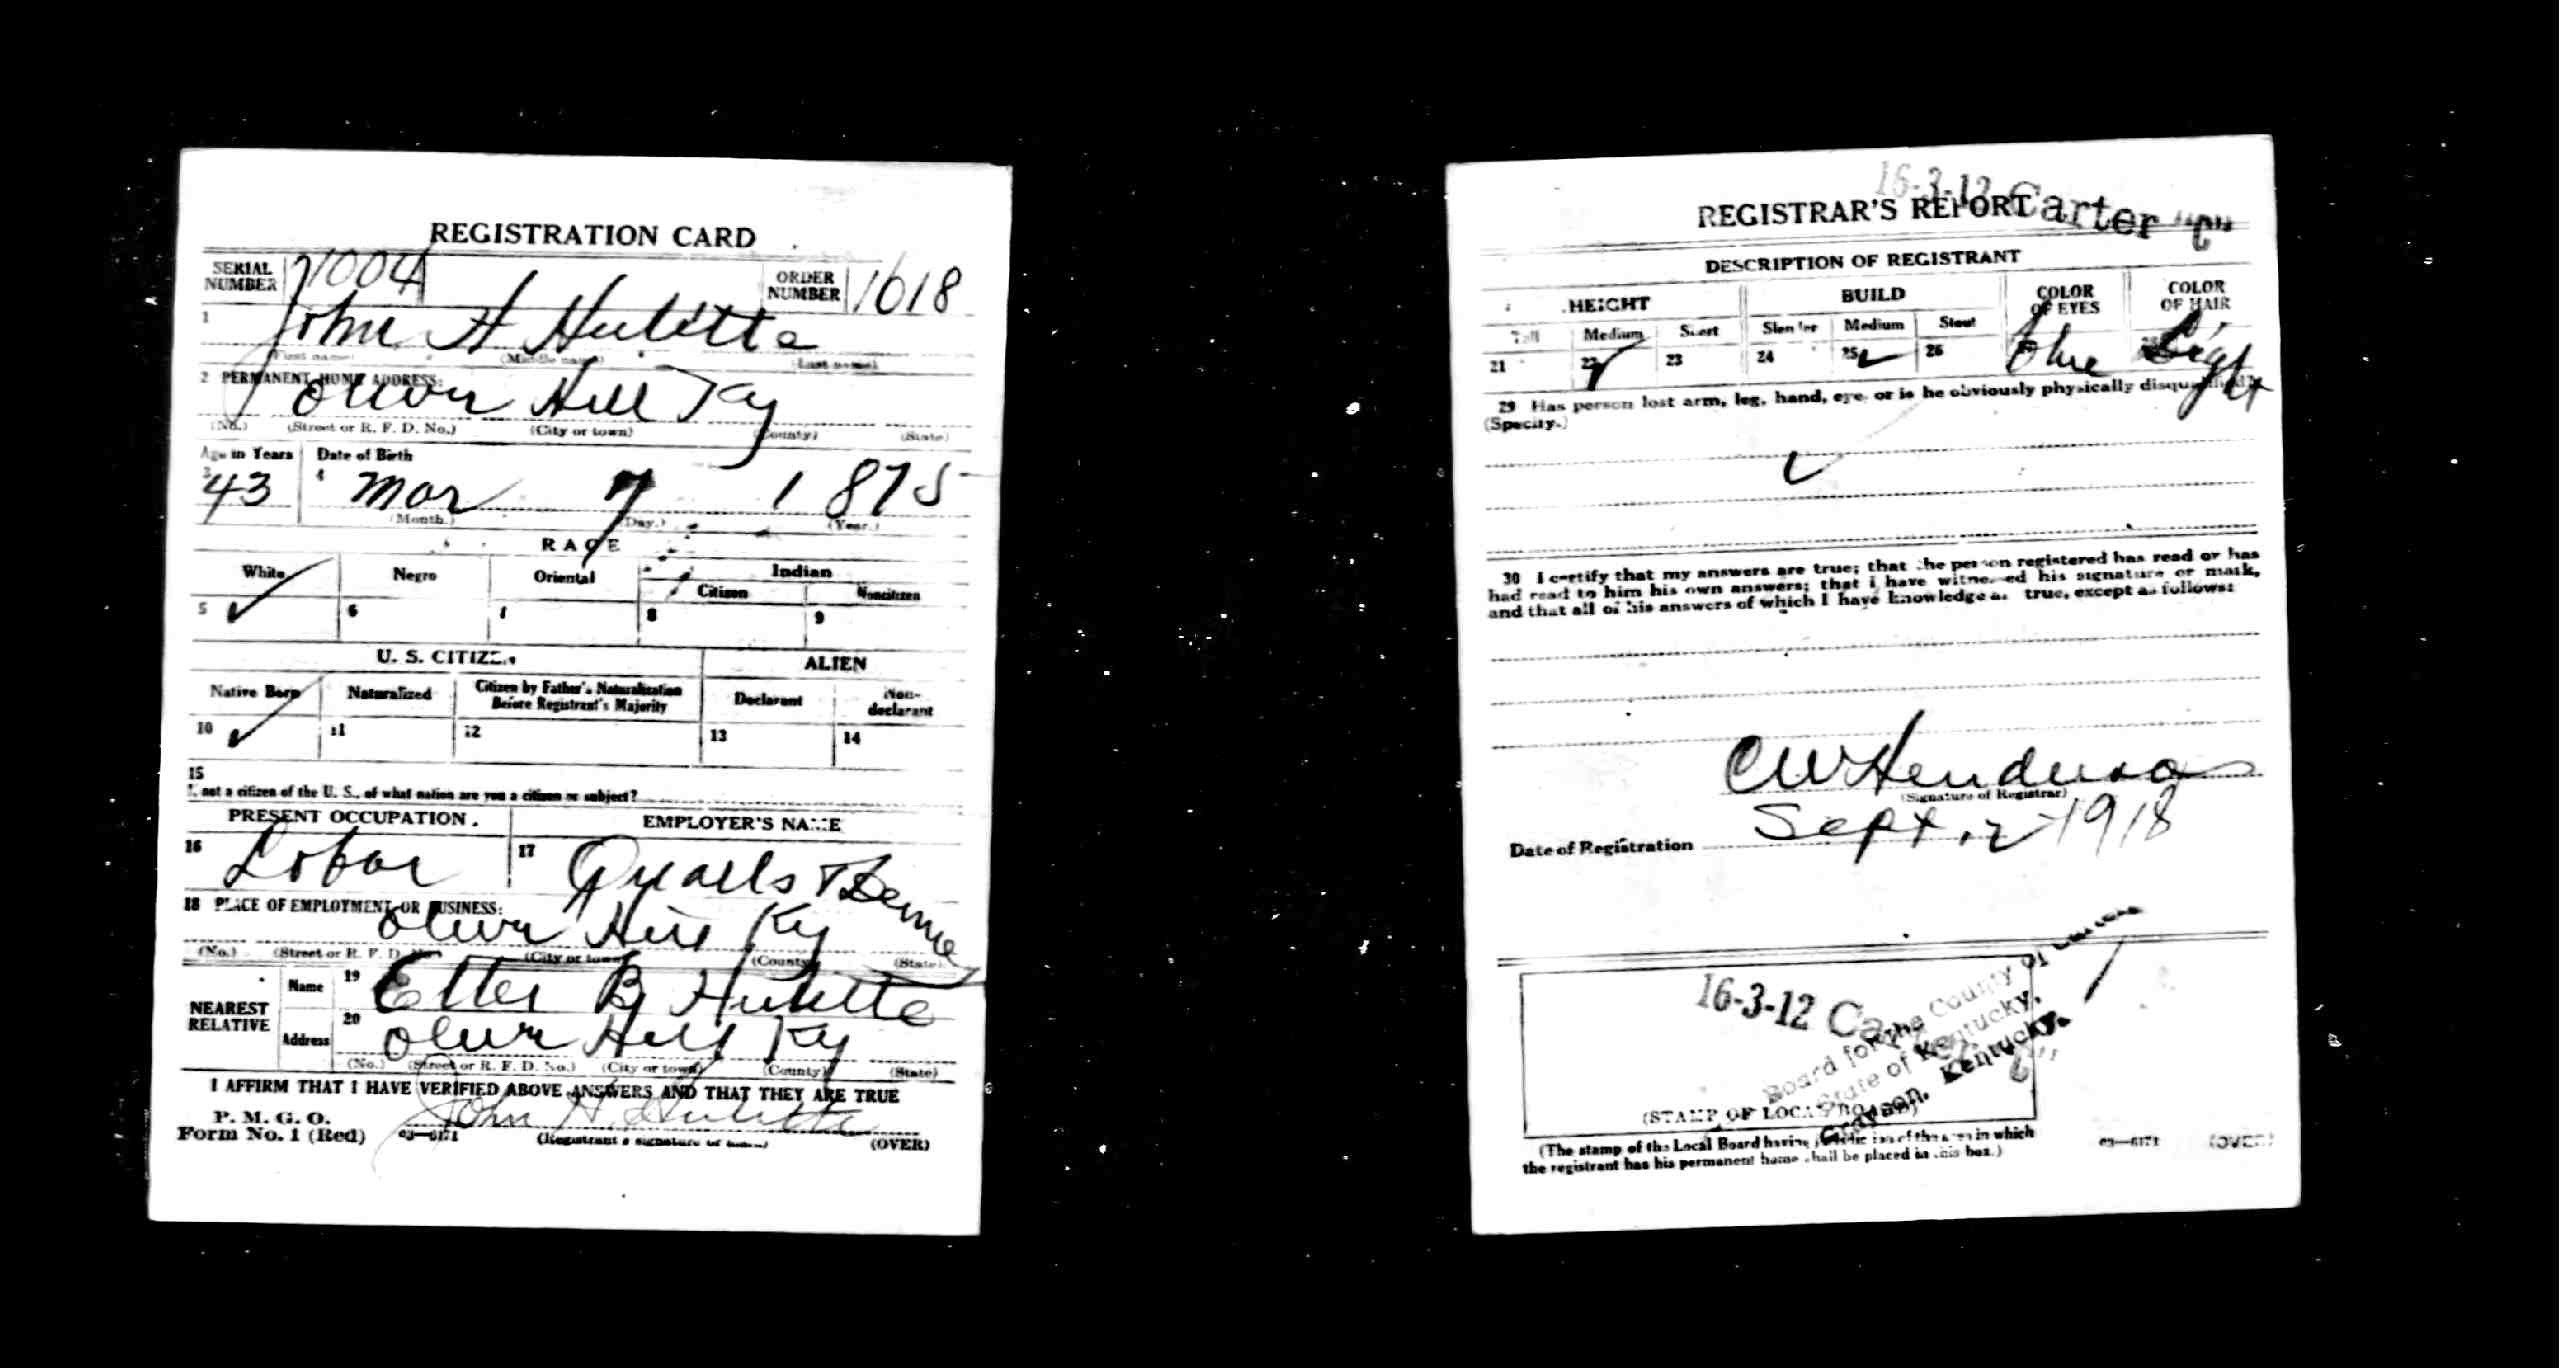 REGISTRATION CARD
SERIAL NUMBER 1004 ORDER NUMBER 1618
1 John H Hulette
(First name) (Middle name) (Last name)
2 PERMANENT HOME ADDRESS:
Oliver Hill Ky
(No.) (Street or R. F. D. No.) (City or town) (County) (State)
Age in Years Date of Birth
3 43 4 Mar 7 1875
(Month.) (Day.) (Year.)
RACE
White Negro Oriental Indian
Citizen Noncitizen
5 ✓ 6 7 8 9
U. S. CITIZEN ALIEN
Native Born Naturalized Citizen by Father's Naturalization Before Registrant's Majority Declarant Non-declarant
10 ✓ 11 12 13 14
15
If not a citizen of the U. S., of what nation are you a citizen or subject?
PRESENT OCCUPATION. EMPLOYER'S NAME
16 Lobar 17 Quarls &
18 PLACE OF EMPLOYMENT OR BUSINESS:
Oliver Hill Ky
(No.) (Street or R. F. D. No.) (City or town) (County) (State)
NEAREST RELATIVE Name 19 Etter B Hulette
Address 20 Oliver Hill Ky
(No.) (Street or R. F. D. No.) (City or town) (County) (State)
I AFFIRM THAT I HAVE VERIFIED ABOVE ANSWERS AND THAT THEY ARE TRUE
P. M. G. O.
Form No. 1 (Red) 03—6171 John H. Hulette
(Registrant's signature or mark) (OVER)
16-3-12 Carter "C"
REGISTRAR'S REPORT
DESCRIPTION OF REGISTRANT
HEIGHT BUILD COLOR OF EYES COLOR OF HAIR
Tall Medium Short Slender Medium Stout
21 22 ✓ 23 24 25 ✓ 26 27 Blue 28 Light
29 Has person lost arm, leg, hand, eye, or is he obviously physically disqualified?
(Specify.)
✓
30 I certify that my answers are true; that the person registered has read or has
had read to him his own answers; that I have witnessed his signature or mark,
and that all of his answers of which I have knowledge are true, except as follows:
C W Henderson
(Signature of Registrar)
Date of Registration Sept 12 1918
16-3-12 Carter "C"
Board for the County of Carter
State of Kentucky,
Grayson, Kentucky.
(STAMP OF LOCAL BOARD)
(The stamp of the Local Board having jurisdiction of the area in which
the registrant has his permanent home shall be placed in this box.)
03—6171 (OVER)